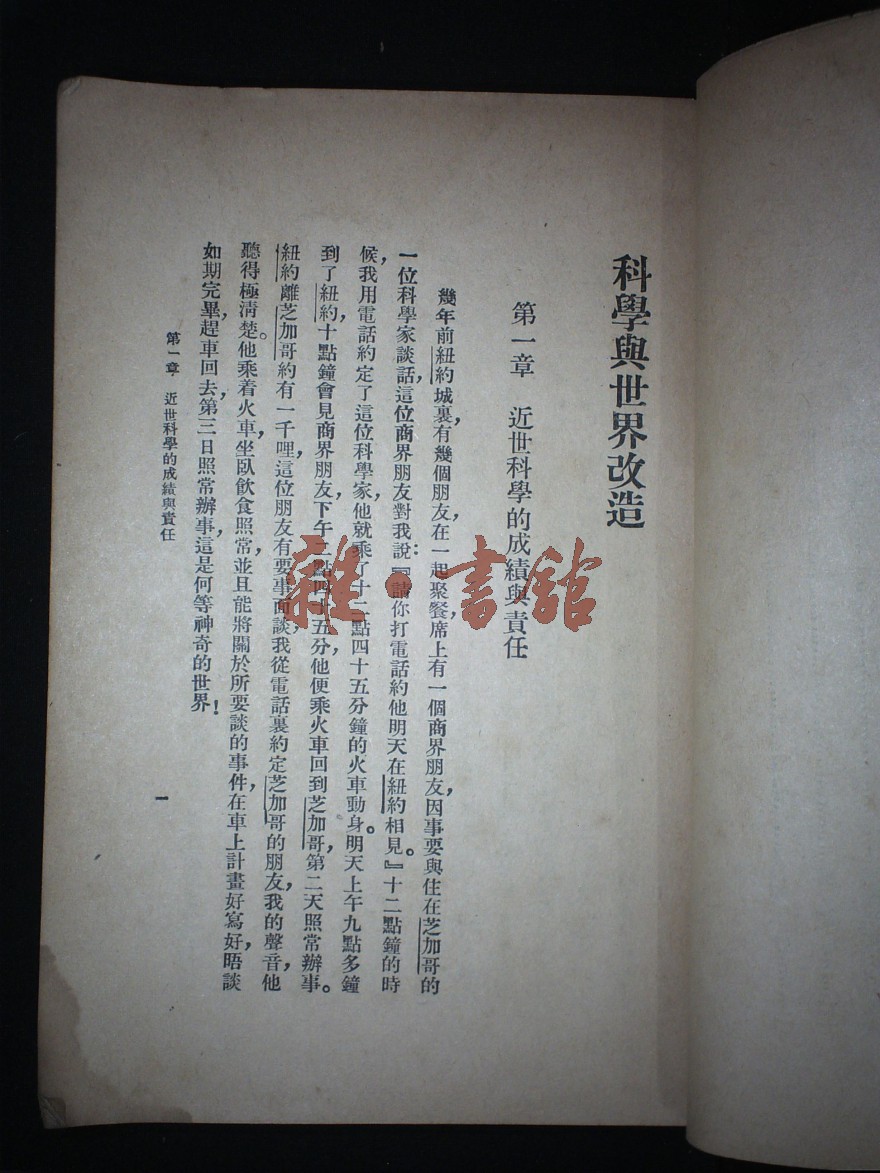 科學與世界改造
第一章　近世科學的成績與責任
幾年前，紐約城裏，有幾個朋友在一起聚餐，席上有一個商界朋友，因事要與住在芝加哥的
一位科學家談話，這位商界朋友對我說：『請你打電話約他明天在紐約相見。』十二點鐘的時
候，我用電話約定了這位科學家，他就乘了十二點四十五分鐘的火車動身。明天上午九點多鐘
到了紐約，十點鐘會見商界朋友，下午二點四十五分他便乘火車回到芝加哥，第二天照常辦事。
紐約離芝加哥約有一千哩，這位朋友有要事面談，我從電話裏約定芝加哥的朋友，我的聲音，他
聽得極清楚。他乘着火車，坐臥飲食照常，並且能將關於所要談的事件，在車上計畫好寫好，晤談
如期完畢，趕車回去，第三日照常辦事，這是何等神奇的世界！
第一章　近世科學的成績與責任
一
雜·書館